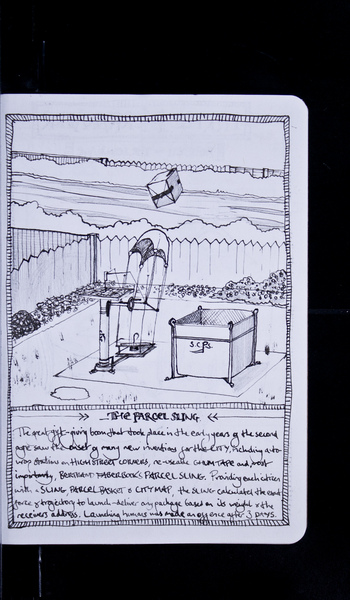 S.C.P.S.
THE PARCEL SLING
The great gift-giving boom that took place in the early years of the second
age saw the onset of many new inventions for the CITY, including auto-
wrap stations on HIGH STREET CORNERS, re-useable CHUM TAPE and most
importantly, BERTRAND FABERBOOK'S PARCEL SLING. Providing each citizen
with a SLING, PARCEL BASKET & CITY MAP, the SLING calculates the exact
force & trajectory to launch-deliver any package based on its weight & the
receivers address. Launching humans was made an offence after 3 DAYS.